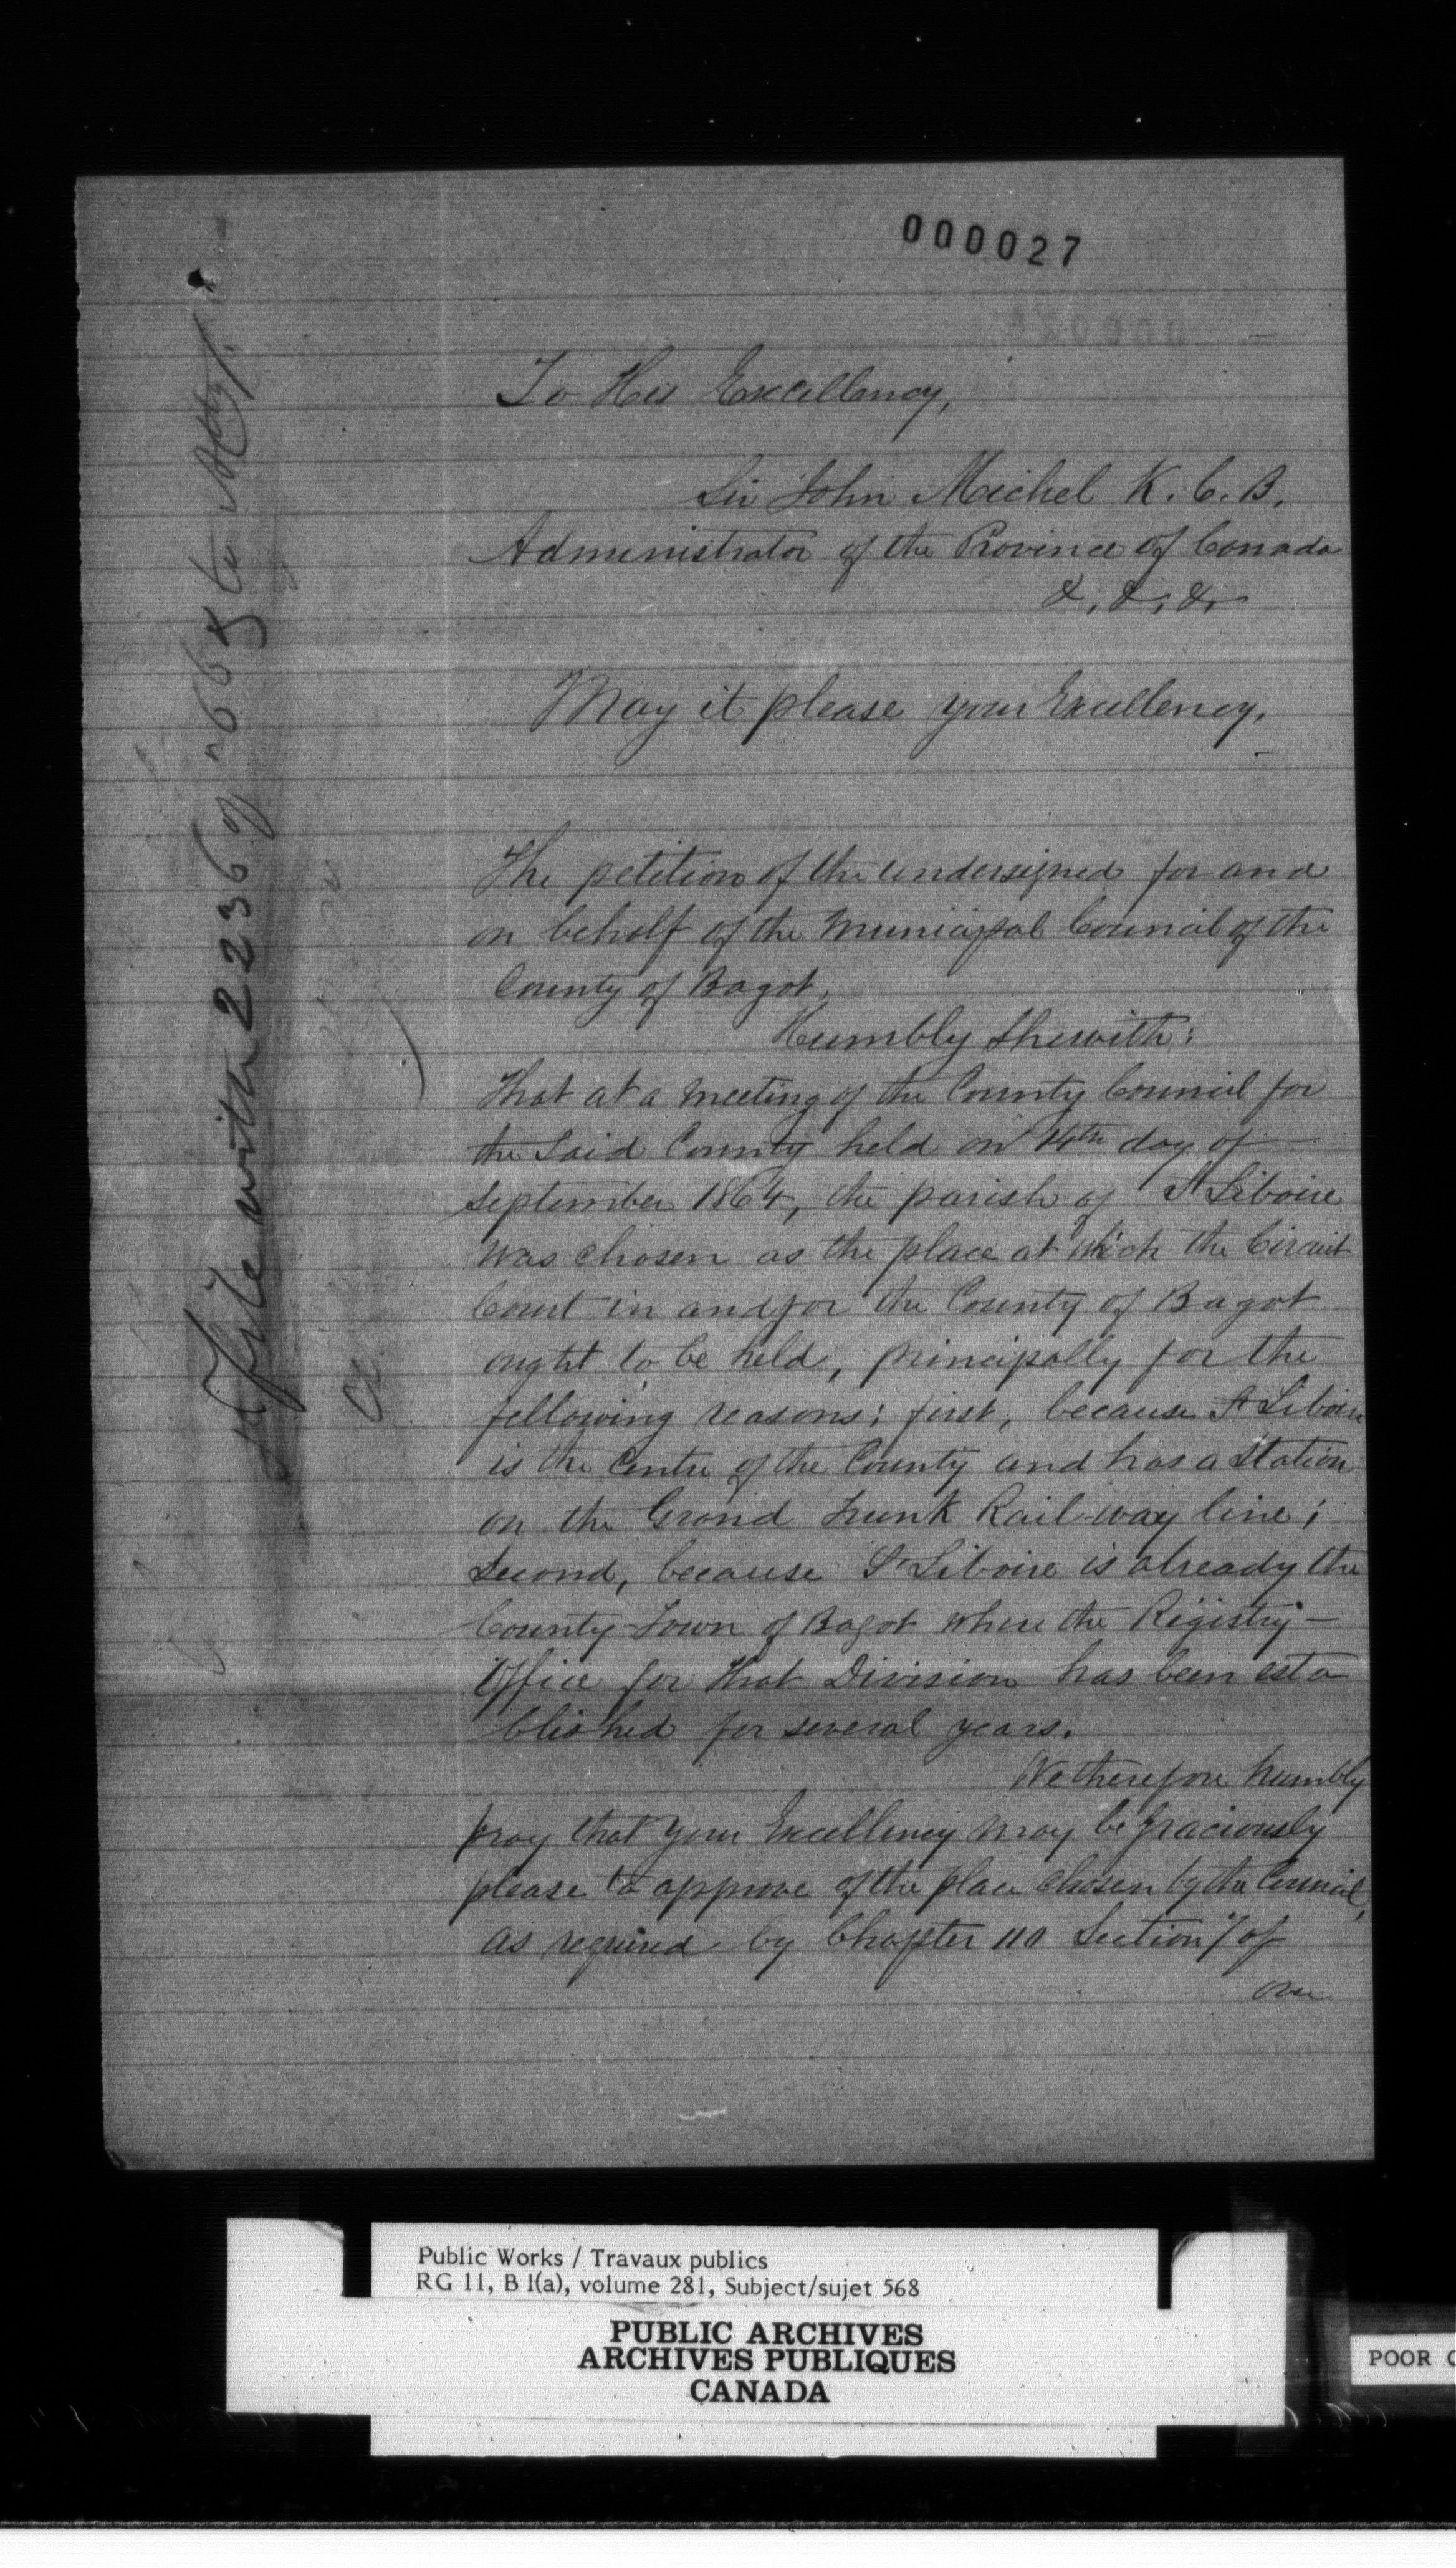 000027
To His Excellency,
Sir John Michel K. C. B.
Administrator of the Province of Canada
&, &, &,
May it please your Excellency,
The petition of the undersigned for and
on behalf of the Municipal Council of the
County of Bagot,
Humbly Shewith:
That at a meeting of the County Council for
the Said County held on 14th day of
September 1864, the parish of St Liboire
was chosen as the place at which the Circuit
Court in and for the County of Bagot
ought to be held, principally for the
following reasons; first, because St Liboire
is the Centre of the County and has a station
on the Grand Trunk Rail-way line;
Second, because St Liboire is already the
County-Town of Bagot where the Registry-
Office for that Division has been esta
blished for several years.
We therefore humbly
pray that your Excellency may be graciously
please to approve of the place chosen by the Council,
as required by Chapter 110 Section 7 of
over
File with 2236 of "66
Public Works / Travaux publics
RG 11, B 1(a), volume 281, Subject/sujet 568
PUBLIC ARCHIVES
ARCHIVES PUBLIQUES
CANADA
POOR